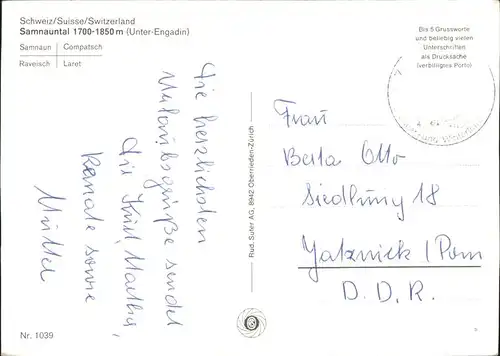 Schweiz/Suisse/Switzerland
Samnauntal 1700-1850 m (Unter-Engadin)
Samnaun | Compatsch
Raveisch | Laret
Bis 5 Grussworte
und beliebig vielen
Unterschriften
als Drucksache
(verbilligtes Porto)
Die herzlichsten
Urlaubsgrüße sendet
die Kurt, Martha,
Renate sowie
Mutter
Rud. Suter AG, 8942 Oberrieden-Zürich
Frau
Berta Otto
Siedlung 18
Jatznick / Pom
D. D. R.
Nr. 1039